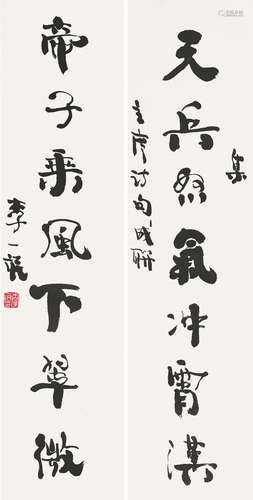 天兵怒氣冲霄漢
集
主席诗句成联
帝子乘風下翠微
李一氓